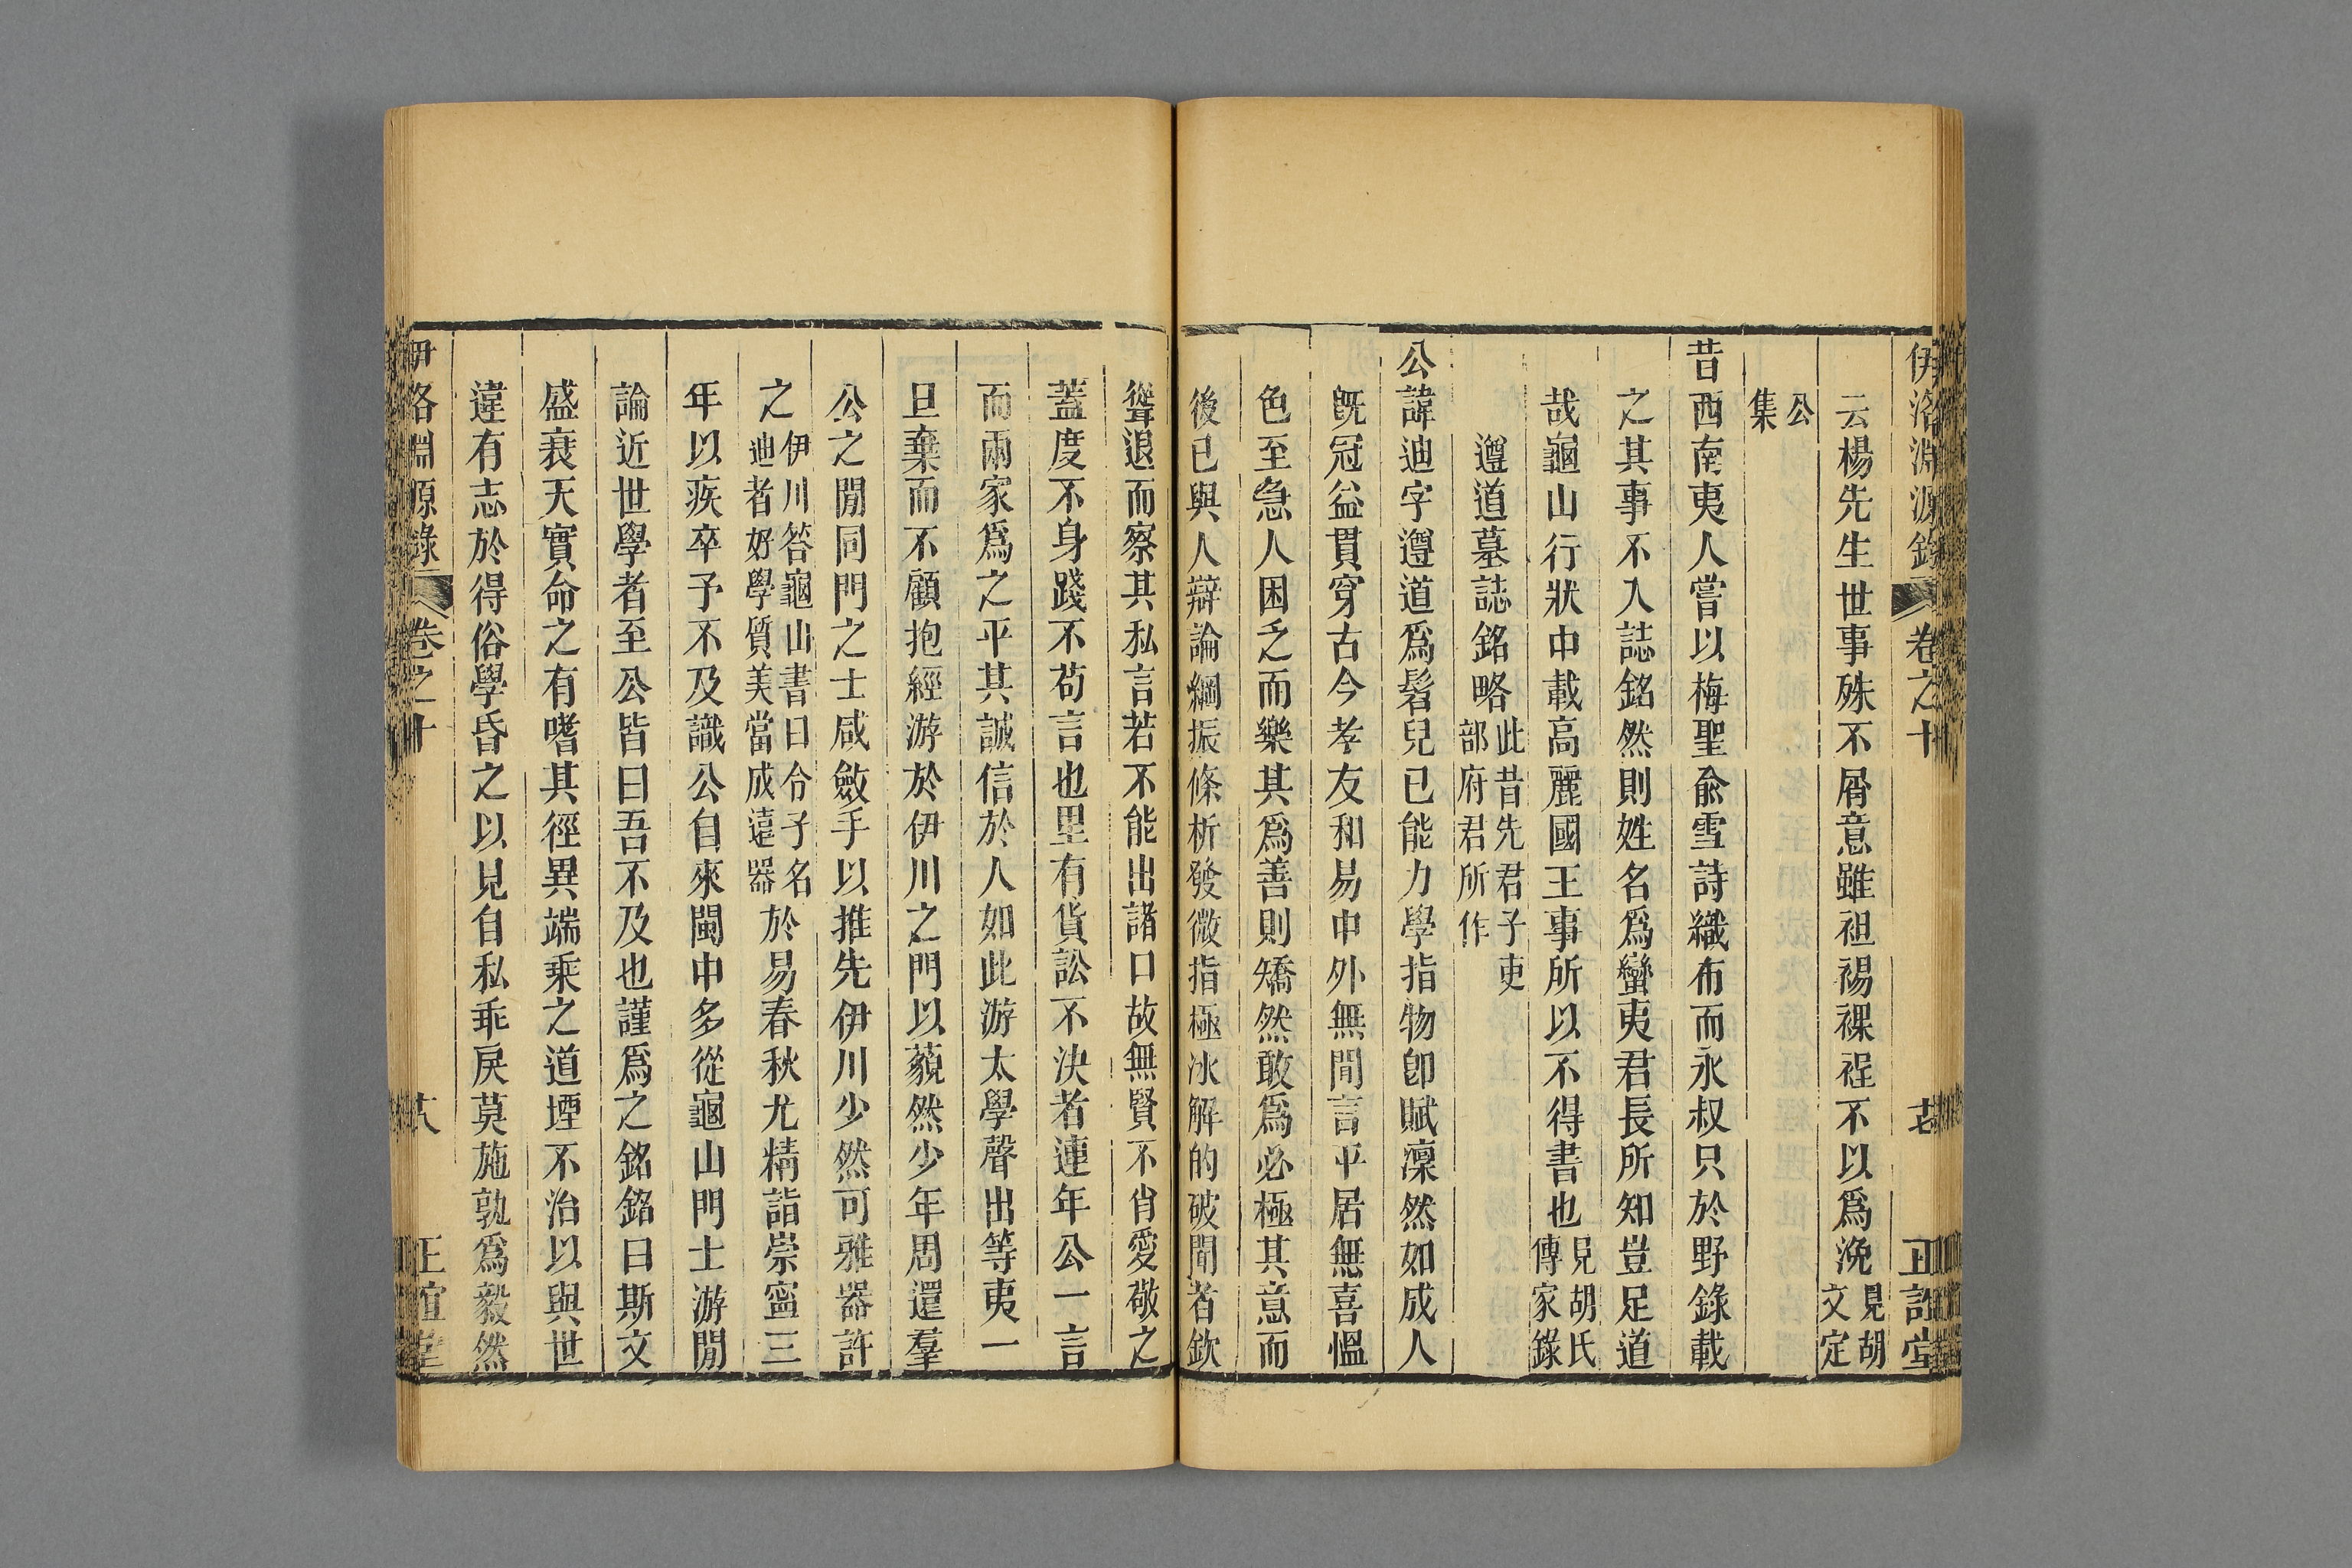 伊洛淵源錄 卷之十 十七 正誼堂
云楊先生世事殊不屑意雖袒裼裸裎不以爲浼見胡文定
公集
昔西南夷人嘗以梅聖兪雪詩織布而永叔只於野錄載
之其事不入誌銘然則姓名爲蠻夷君長所知豈足道
哉龜山行狀中載高麗國王事所以不得書也見胡氏傳家錄
遵道墓誌銘略此昔先君子吏部府君所作
公諱迪字遵道爲髫兒已能力學指物卽賦凜然如成人
旣冠益貫穿古今孝友和易中外無間言平居無喜慍
色至急人困乏而樂其爲善則矯然敢爲必極其意而
後已與人辯論綱振條析發微指極冰解的破聞者欽
聳退而察其私言若不能出諸口故無賢不肖愛敬之
蓋度不身踐不苟言也里有貨訟不決者連年公一言
而兩家爲之平其誠信於人如此游太學聲出等夷一
旦棄而不顧抱經游於伊川之門以藐然少年周還羣
公之閒同門之士咸斂手以推先伊川少然可雅器許
之伊川答龜山書曰令子名迪者好學質美當成遠器於易春秋尤精詣崇寧三
年以疾卒予不及識公自來閩中多從龜山門士游閒
論近世學者至公皆曰吾不及也謹爲之銘銘曰斯文
盛衰天實命之有嗜其徑異端乘之道堙不治以與世
違有志於得俗學昏之以見自私乖戾莫施孰爲毅然
伊洛淵源錄 卷之十 十八 正誼堂